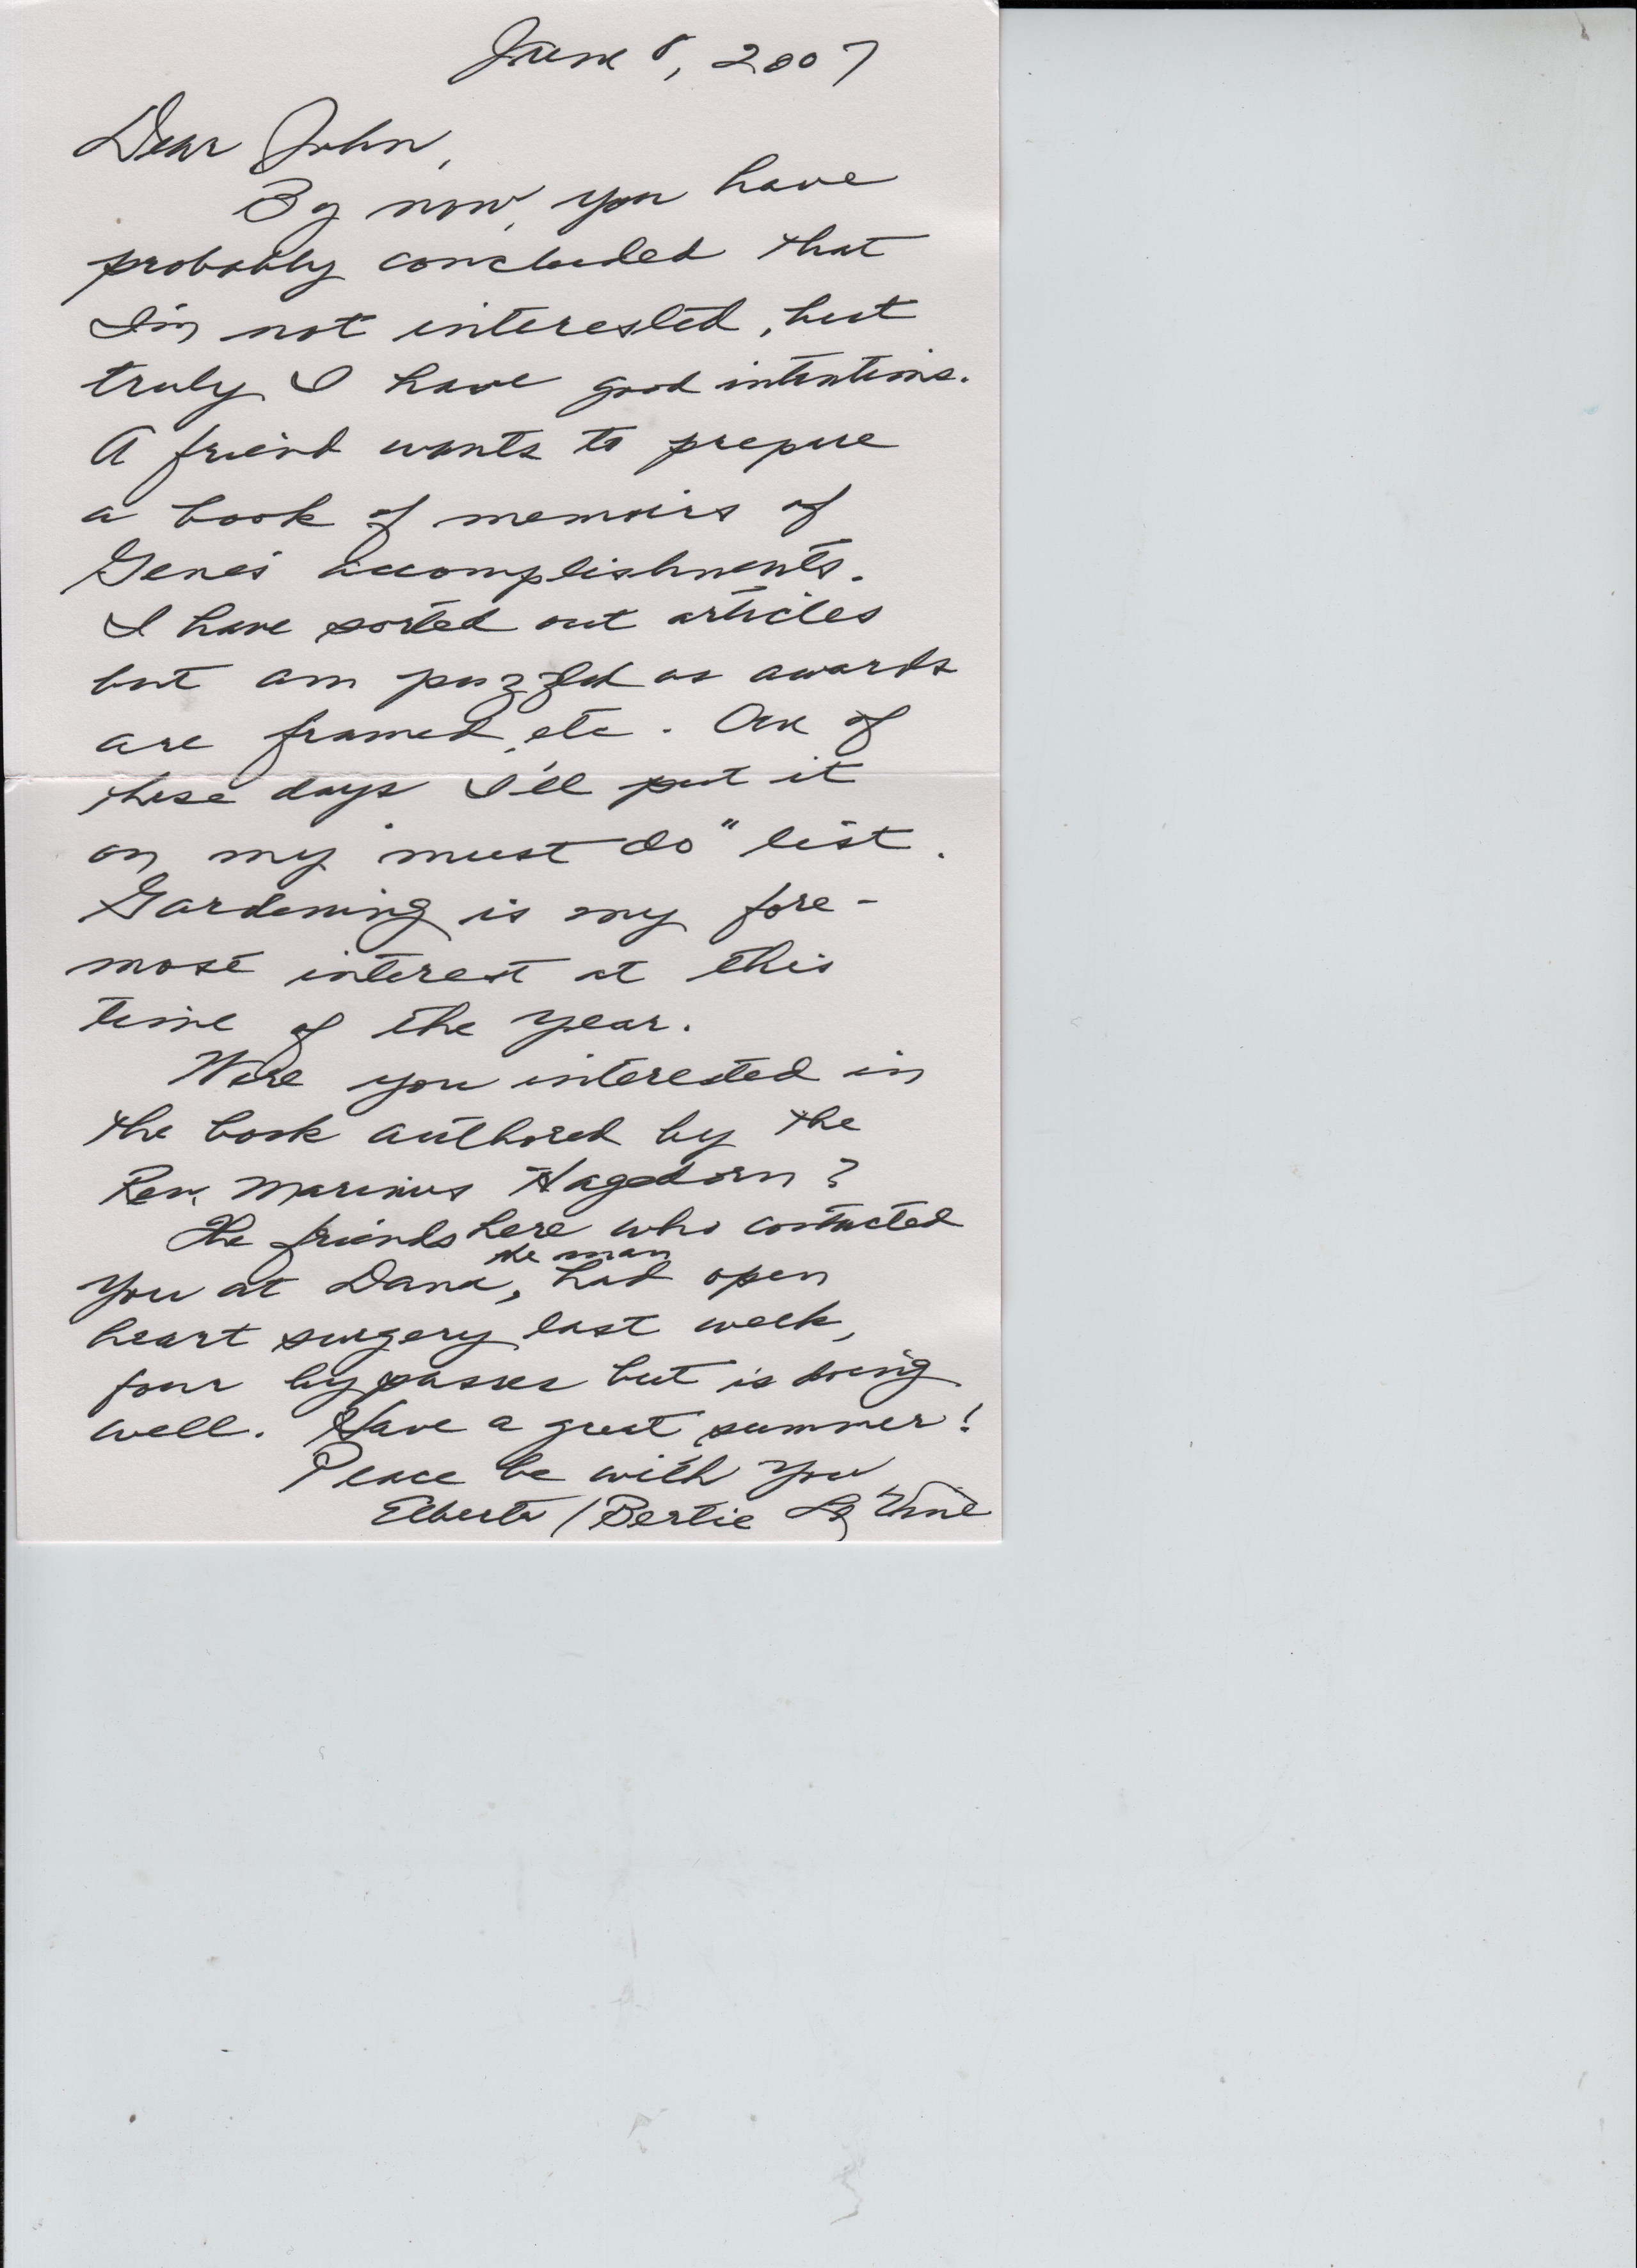 June 8, 2007
Dear John,
By now, you have
probably concluded that
I'm not interested, but
truly I have good intentions.
A friend wants to prepare
a book of memoirs of
Gene's accomplishments.
I have sorted out articles
but am puzzled as awards
are framed, etc. One of
these days I'll put it
on my "must do" list.
Gardening is my fore-
most interest at this
time of the year.
Were you interested in
the book authored by the
Rev. Marinus Hagedorn?
The friends here who contacted
you at Dana, the man had open
heart surgery last week,
four bypasses but is doing
well. Have a great summer!
Peace be with you
Elberta / Bertie